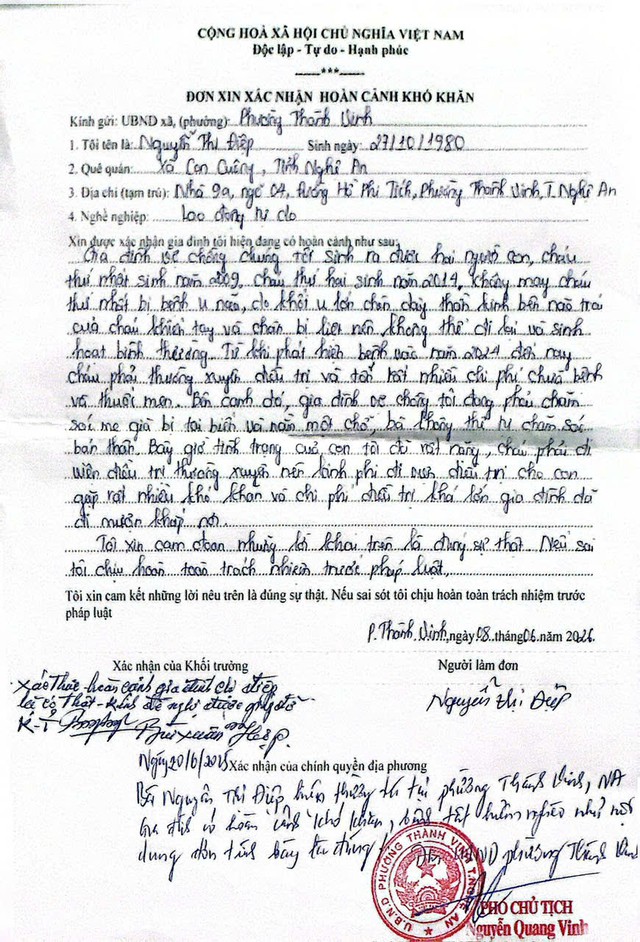 CỘNG HOÀ XÃ HỘI CHỦ NGHĨA VIỆT NAM
Độc lập - Tự do - Hạnh phúc
-----***-----
ĐƠN XIN XÁC NHẬN HOÀN CẢNH KHÓ KHĂN
Kính gửi: UBND xã, (phường): Phường Thành Vinh
1. Tôi tên là: Nguyễn Thị Điệp Sinh ngày: 27/10/1980
2. Quê quán: Xã Con Cuông, Tỉnh Nghệ An
3. Địa chỉ (tạm trú): Nhà 9a, ngõ 04, đường Hồ Phi Tích, Phường Thành Vinh, T. Nghệ An
4. Nghề nghiệp: Lao động tự do
Xin được xác nhận gia đình tôi hiện đang có hoàn cảnh như sau:
Gia đình vợ chồng chúng tôi sinh ra được hai người con, cháu
thứ nhất sinh năm 2009, cháu thứ hai sinh năm 2014, không may cháu
thứ nhất bị bệnh u não, do khối u lớn chèn dây thần kinh bên não trái
của cháu khiến tay và chân bị liệt nên không thể đi lại và sinh
hoạt bình thường. Từ khi phát hiện bệnh vào năm 2024 đến nay
cháu phải thường xuyên điều trị và tốn rất nhiều chi phí chữa bệnh
và thuốc men. Bên cạnh đó, gia đình vợ chồng tôi đang phải chăm
sóc mẹ già bị tai biến và nằm một chỗ, bà không thể tự chăm sóc
bản thân. Bây giờ tình trạng của con tôi đã rất nặng, cháu phải đi
viện điều trị thường xuyên nên kinh phí đi viện điều trị cho con
gặp rất nhiều khó khăn và chi phí điều trị khá lớn gia đình đã
đi mượn khắp nơi.
Tôi xin cam đoan những lời khai trên là đúng sự thật. Nếu sai
tôi chịu hoàn toàn trách nhiệm trước pháp luật.
Tôi xin cam kết những lời nêu trên là đúng sự thật. Nếu sai sót tôi chịu hoàn toàn trách nhiệm trước
pháp luật
P. Thành Vinh, ngày 08 tháng 06 năm 2026
Xác nhận của Khối trưởng Người làm đơn
Xác thực hoàn cảnh gia đình chị Điệp
là có thật - Kính đề nghị được giúp đỡ
K-T Bùi Xuân Hiệp Nguyễn Thị Điệp
Ngày 20/6/
Xác nhận của chính quyền địa phương
Bà Nguyễn Thị Điệp hiện thường trú tại phường Thành Vinh, NA
Gia đình có hoàn cảnh khó khăn, hiểm nghèo như nội
dung đơn trình bày là đúng UBND phường Thành Vinh
U.B.N.D PHƯỜNG THÀNH VINH T. NGHỆ AN
PHÓ CHỦ TỊCH
Nguyễn Quang Vinh